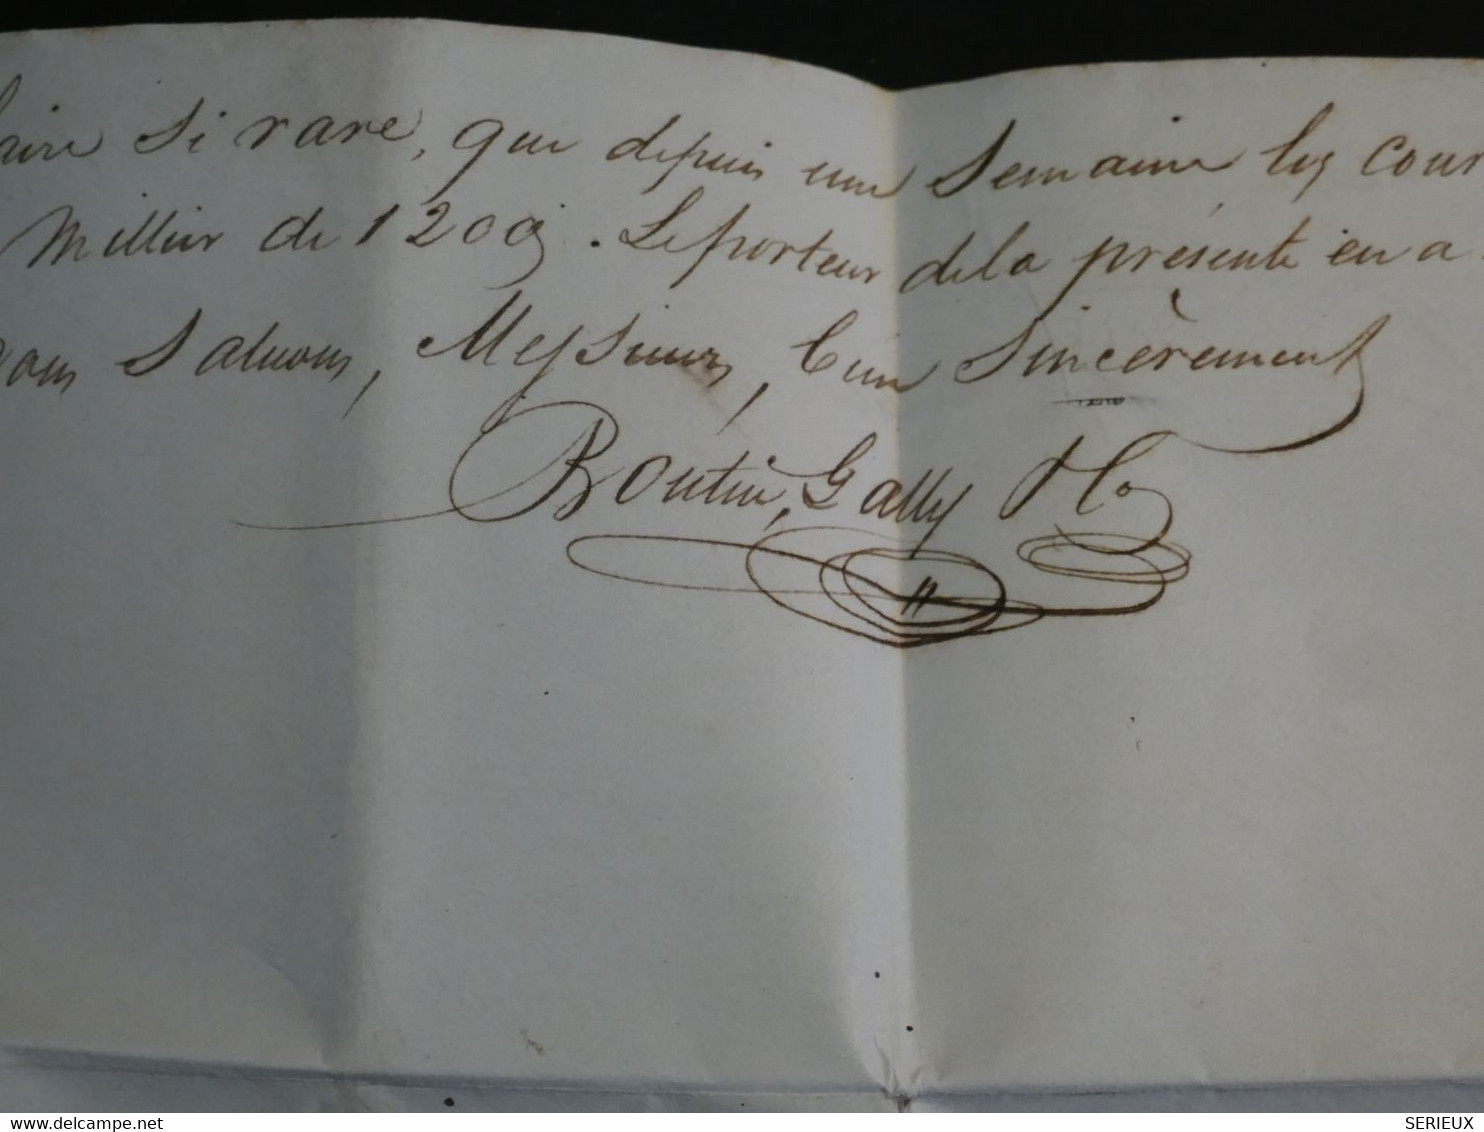 aire si rare, que depuis une semaine les cour
millier de 1200f. Le porteur de la présente en a
vous saluons, Messieurs, bien sincèrement
Boutin, Gally & Co
delcampe.net
SERIEUX